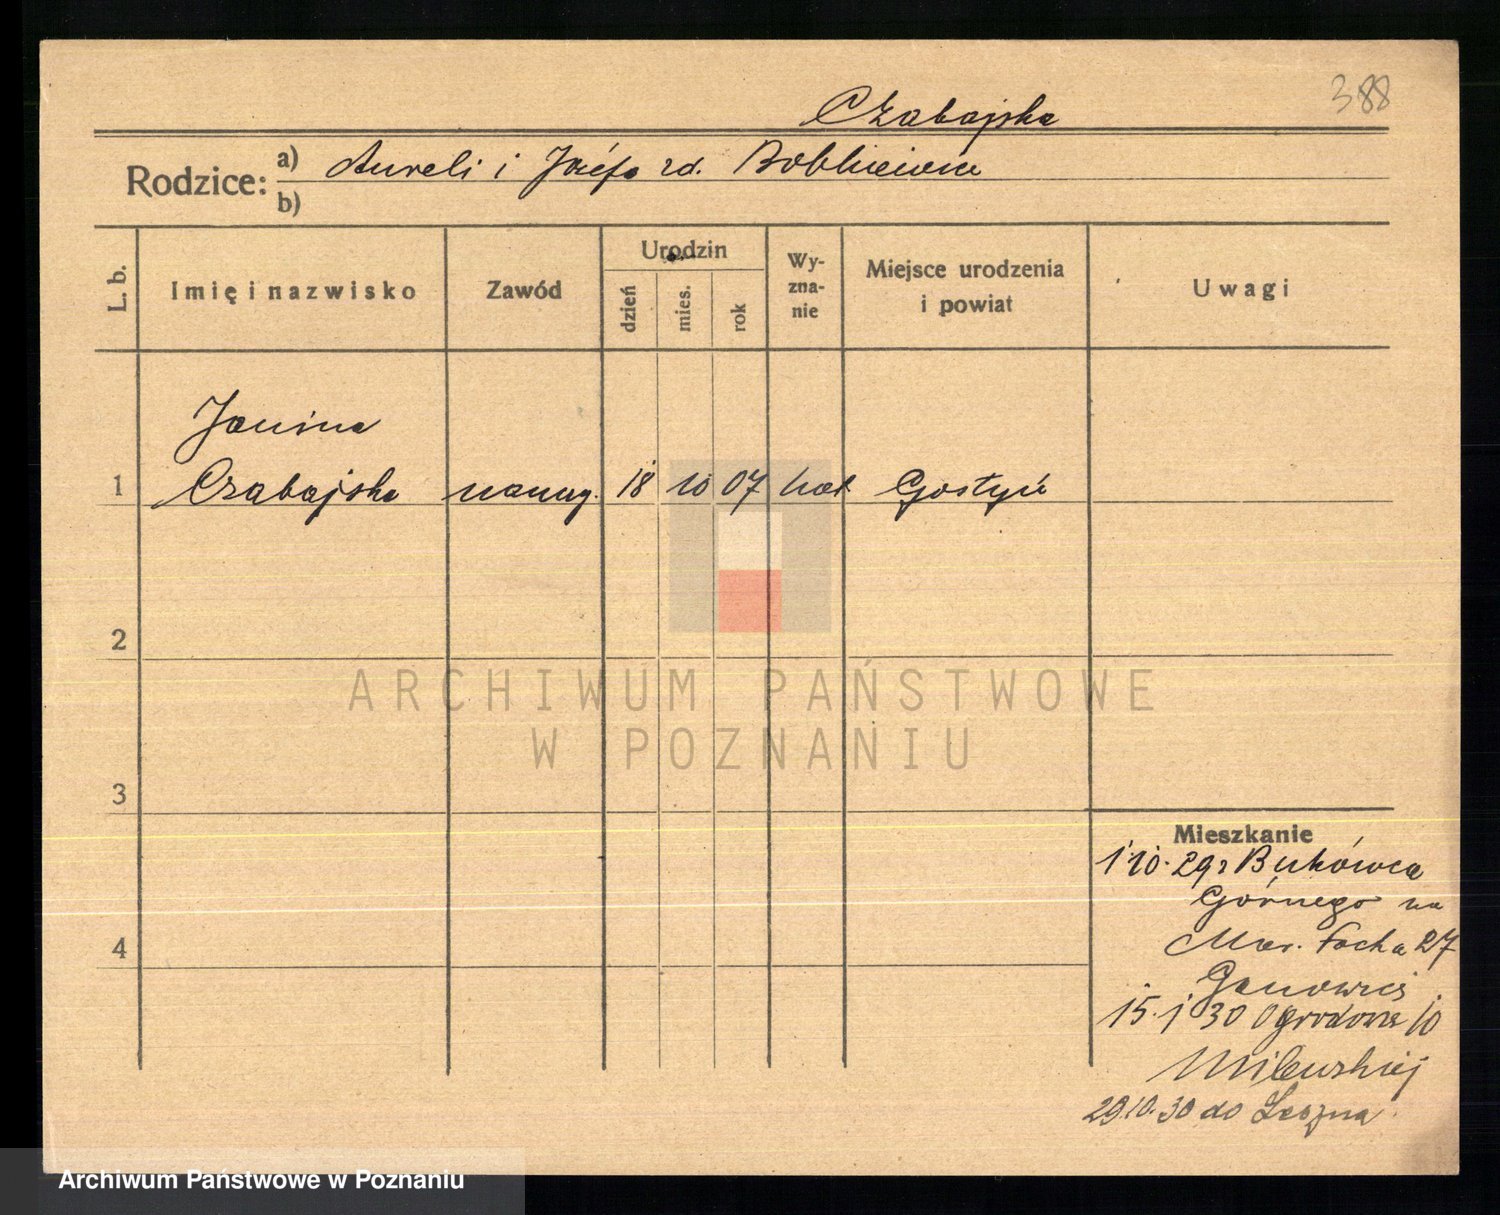 388
Czabajska
Rodzice: a) Aureli i Józefa zd.
b)
L. b.
Imię i nazwisko
Zawód
Urodzin
dzień
mies.
rok
Wy-
zna-
nie
Miejsce urodzenia
i powiat
Uwagi
Janina
1 Czabajska naucz. 18 10 07 kat Gostyń
2
3
4
Mieszkanie
1 10. 29 z Bukówca
Górnego na
Mar. Focha 27
15. 1 30 Ogrodowa 10
Milewskiej
29.10.30 do Leszna
ARCHIWUM PAŃSTWOWE
W POZNANIU
Archiwum Państwowe w Poznaniu